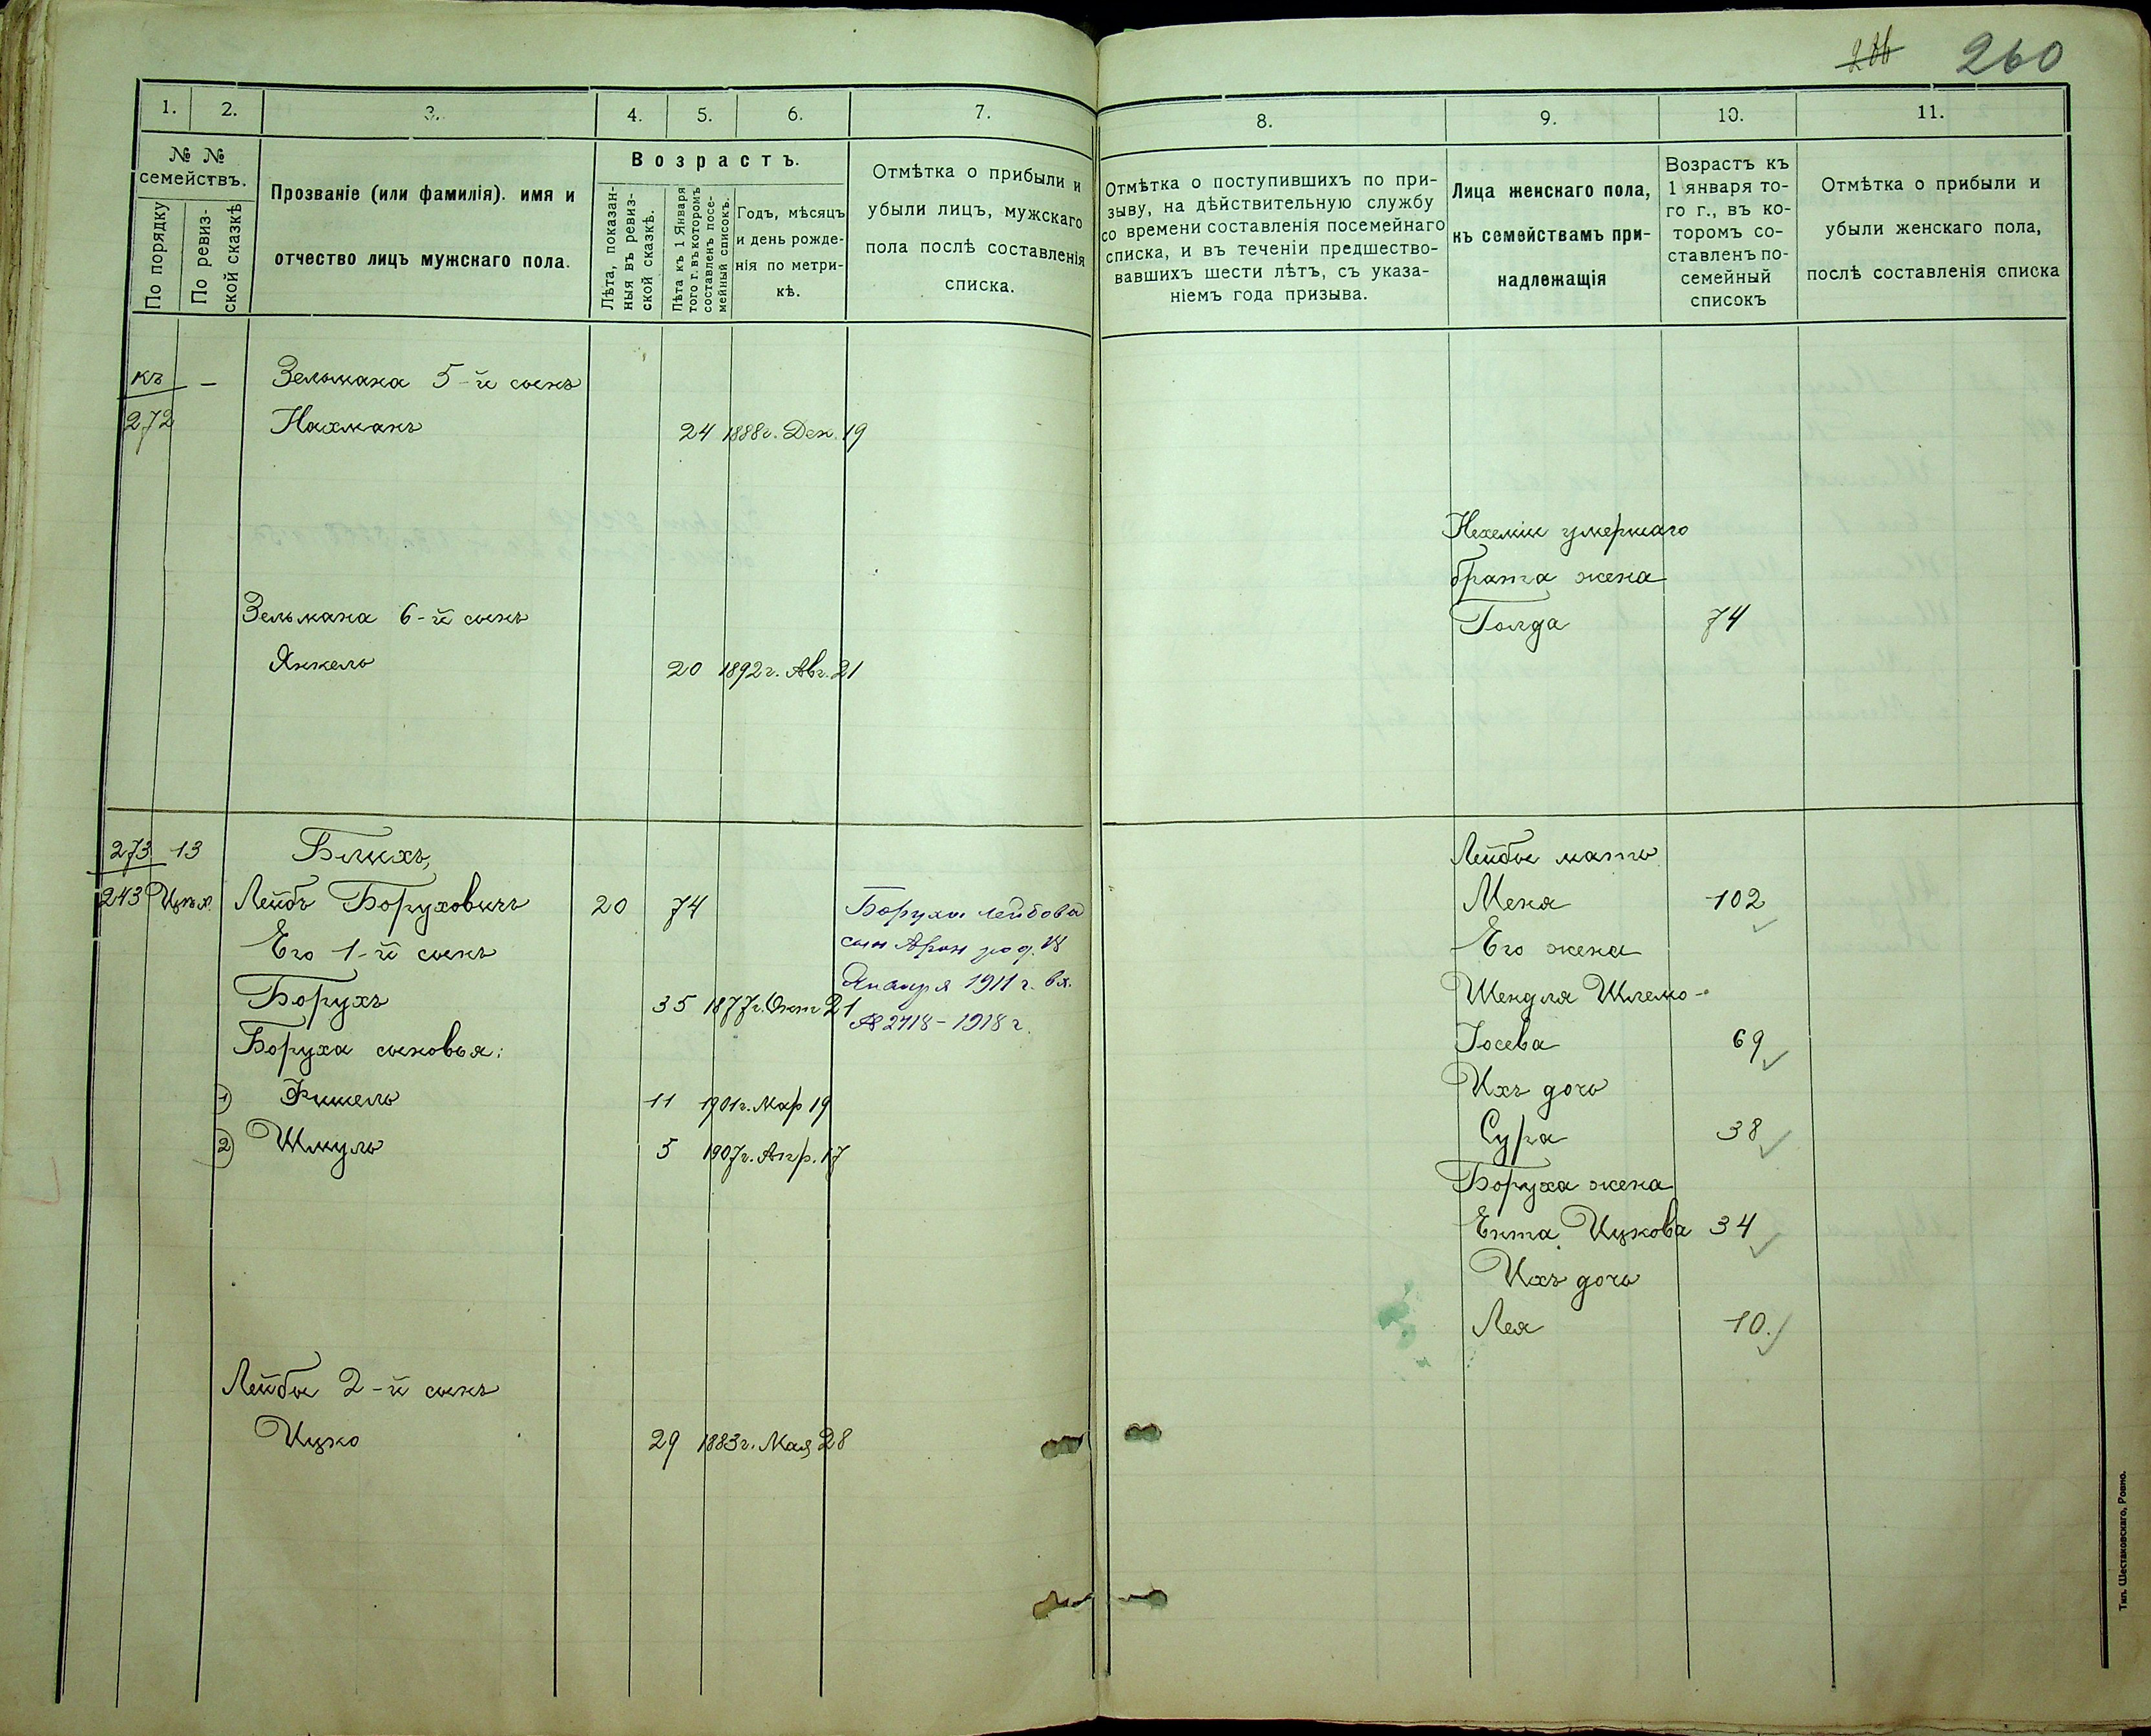 260
1.
2.
3.
4.
5.
6.
7.
№ №
семействъ.
По порядку
По ревиз-
ской сказкѣ
Прозваніе (или фамилія). имя и
отчество лицъ мужскаго пола.
Возрастъ.
Лѣта, показан-
ныя въ ревиз-
ской сказкѣ.
Лѣта къ 1 Января
того г. въ которомъ
составленъ посе-
мейный списокъ.
Годъ, мѣсяцъ
и день рожде-
нія по метри-
кѣ.
Отмѣтка о прибыли и
убыли лицъ, мужскаго
пола послѣ составленія
списка.
къ — Зельмана 5-й сынъ
272 Нахманъ 24 1888г. Дек. 19
Зельмана 6-й сынъ
Янкель 20 1892г. Авг. 21
273 13 Блихъ,
243 Лейбъ Боруховичъ 20 74
Его 1-й сынъ
Борухъ 35 1877г. Окт 21
Боруха сыновья:
1) Фишель 11 1901г. Мар 19
2) Шмуль 5 1907г. Апр. 17
Лейбы 2-й сынъ
Ицко 29 1883г. Мая 28
Боруха Лейбова
сын Арон род. 18
Января 1911 г. вх.
№ 2718 - 1918 г.
8.
9.
10.
11.
Отмѣтка о поступившихъ по при-
зыву, на дѣйствительную службу
со времени составленія посемейнаго
списка, и въ теченіи предшество-
вавшихъ шести лѣтъ, съ указа-
ніемъ года призыва.
Лица женскаго пола,
къ семействамъ при-
надлежащія
Возрастъ къ
1 января то-
го г., въ ко-
торомъ со-
ставленъ по-
семейный
списокъ
Отмѣтка о прибыли и
убыли женскаго пола,
послѣ составленія списка
Нехеміи умершаго
брата жена
Голда 74
Лейбы мать
Меня 102
Его жена
Шендля Шлемо-
Іосева 69
Ихъ дочь
Сура 38
Боруха жена
Ента Ицкова 34
Ихъ дочь
Лея 10.
Тип. Шестаковскаго, Ровно.